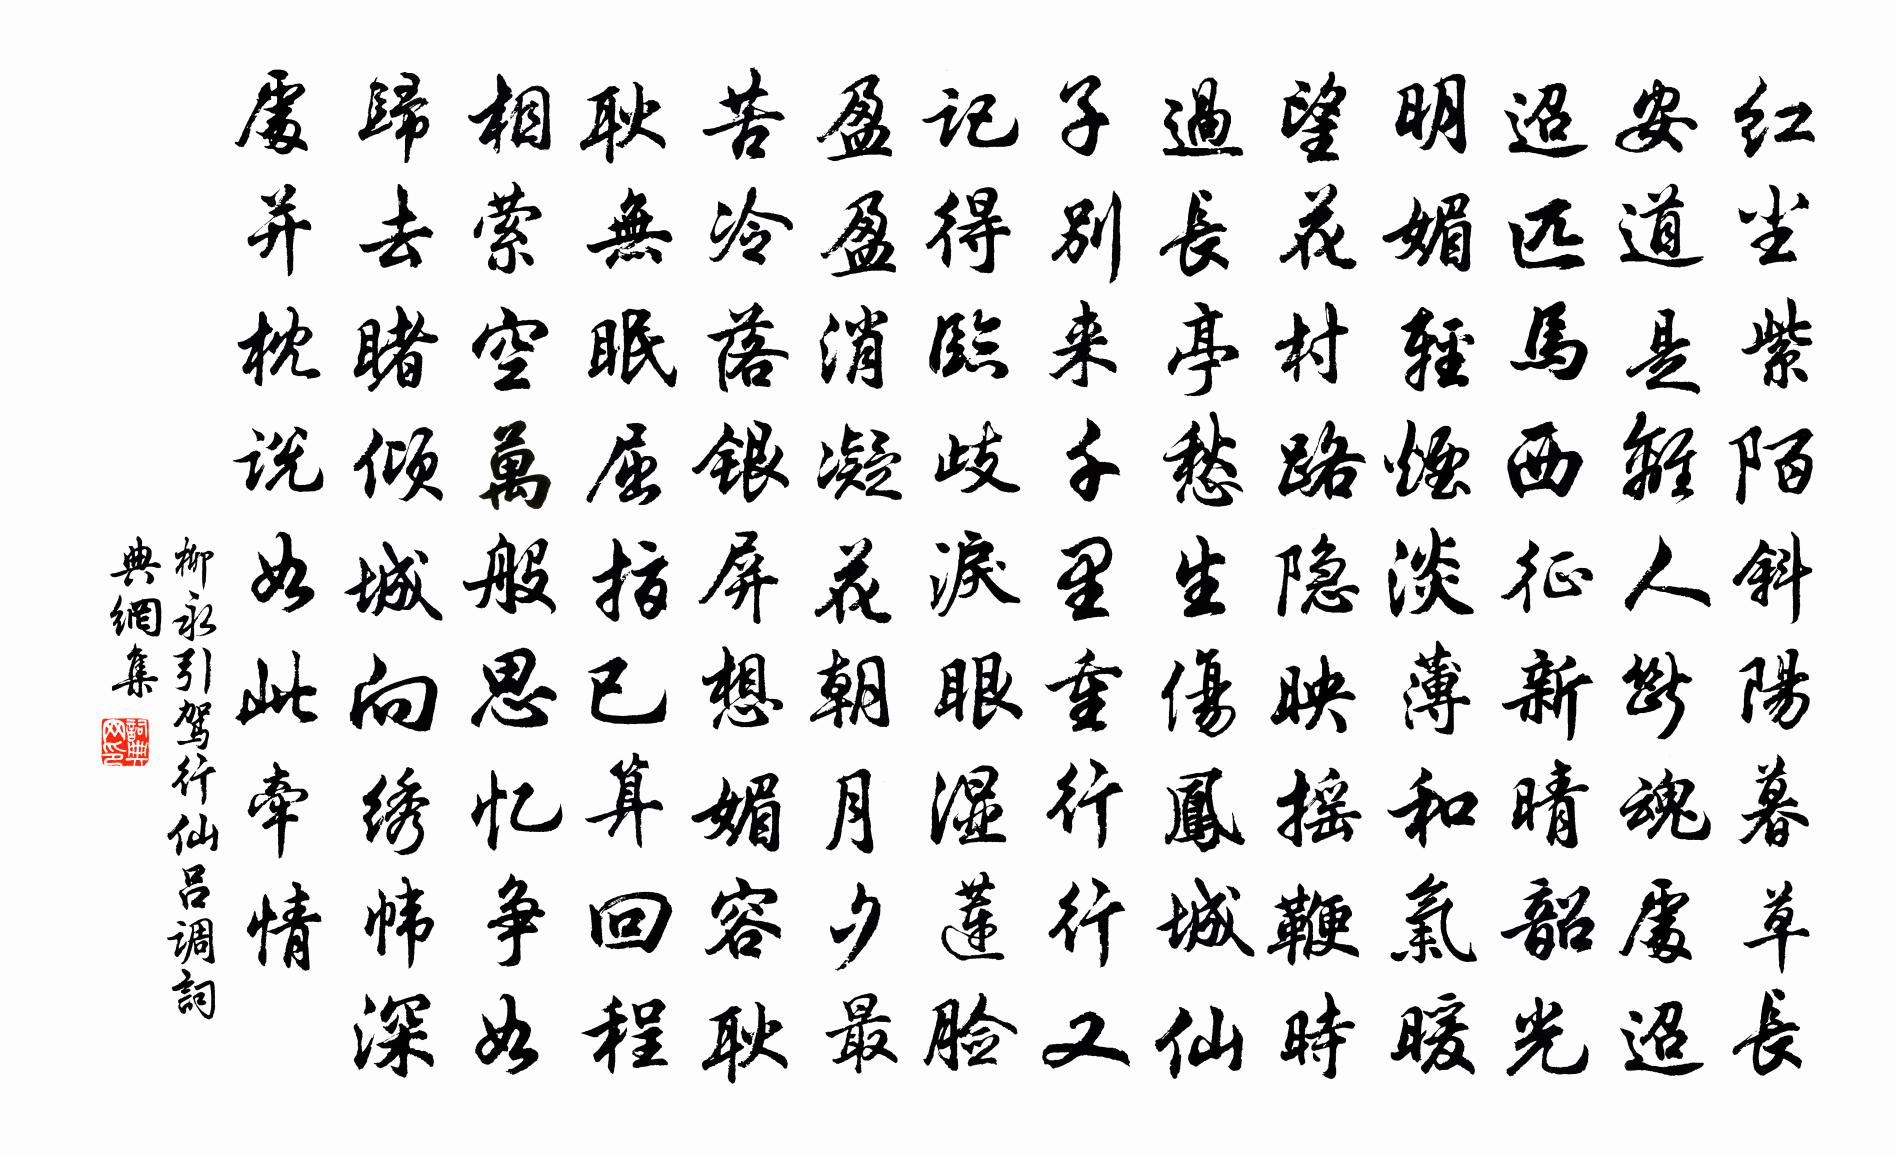 红尘紫陌斜陽暮草長
安道是離人斷魂處迢
迢匹馬西征新晴韶光
明媚輕煙淡薄和氣暖
望花村路隐映摇鞭時
過長亭愁生傷鳳城仙
子别来千里重行行又
记得臨歧淚眼湿蓮脸
盈盈消凝花朝月夕最
苦冷落銀屏想媚容耿
耿無眠屈指已算回程
相萦空萬般思忆争如
歸去睹倾城向绣帏深
處并枕说如此牵情
柳永引驾行仙吕调詞
典網集
詞典网印